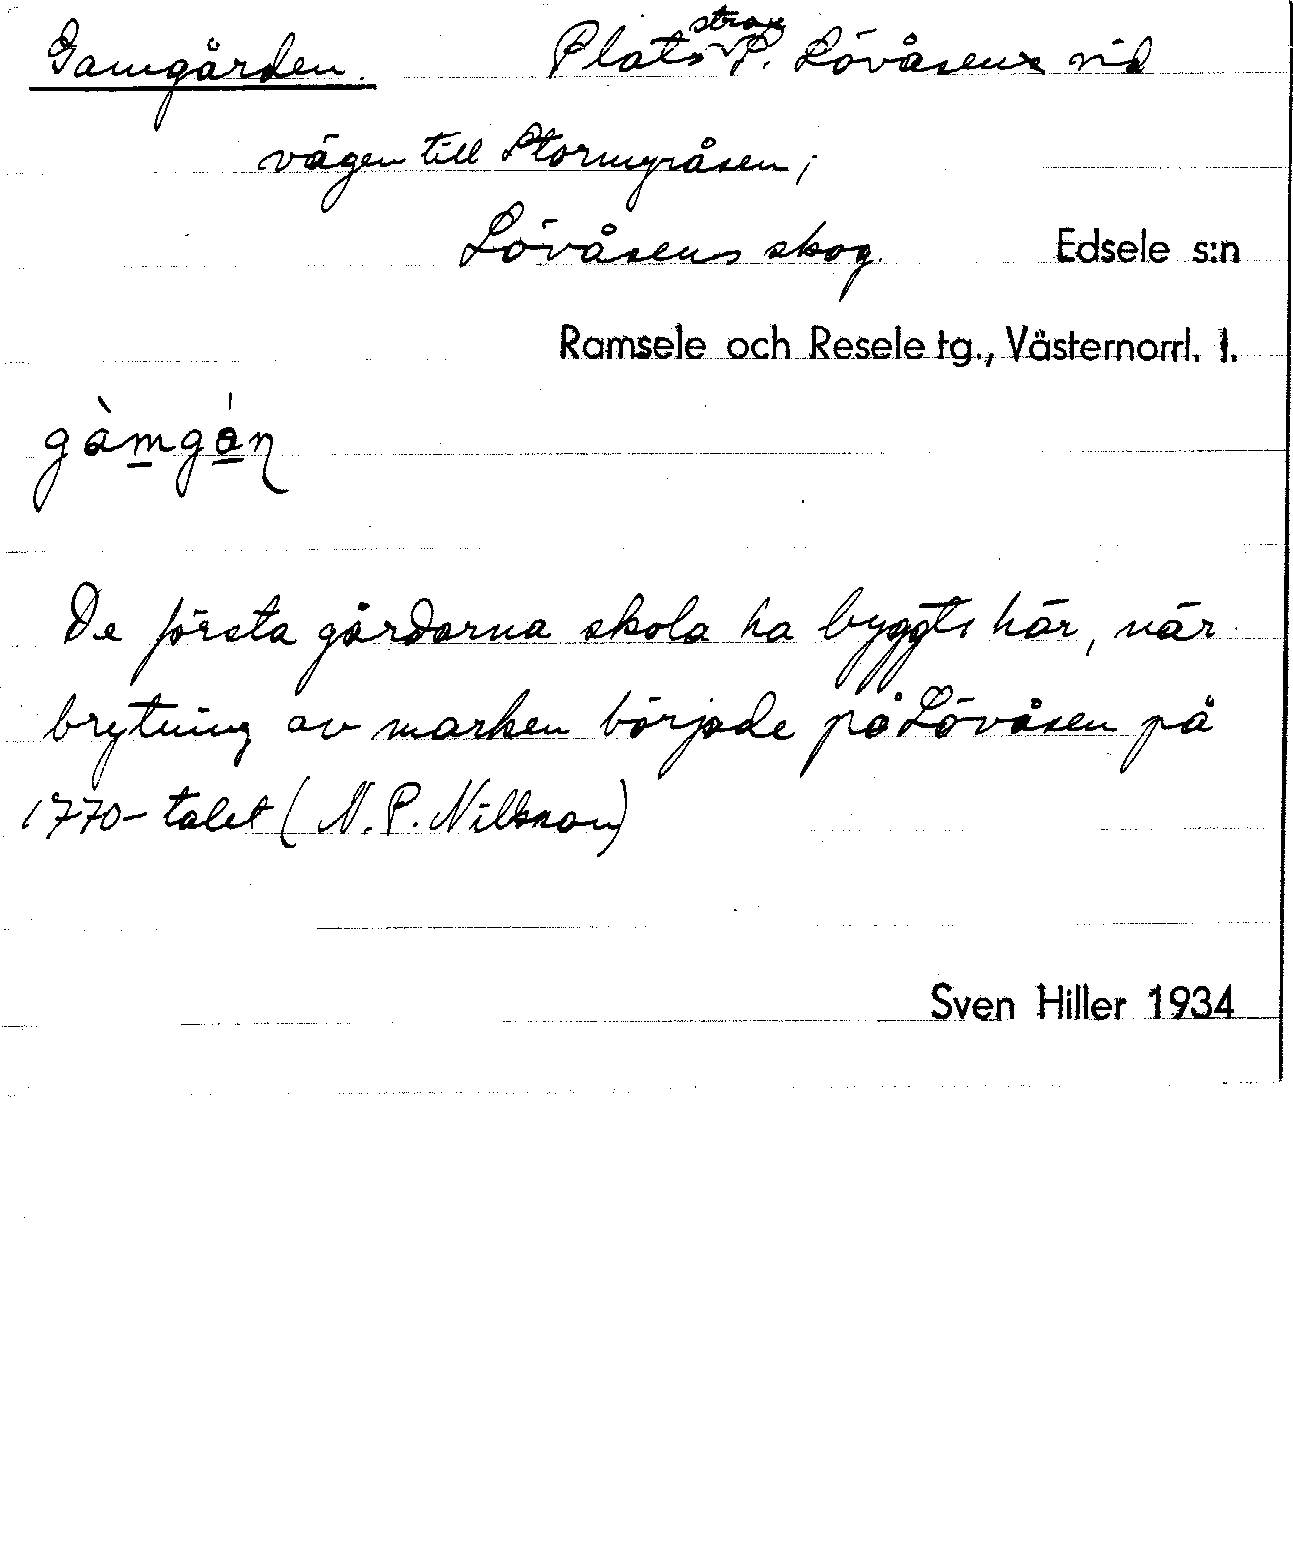 Gamgården. Plats strax P. Lövåsen vid
vägen till Stormyråsen;
Lövåsens skog. Edsele s:n
Ramsele och Resele tg., Västernorrl. l.
gàmgán
De första gårdarna skola ha byggts här, när
brytning av marken började på Lövåsen på
1770-talet (N. P. Nilsson)
Sven Hiller 1934